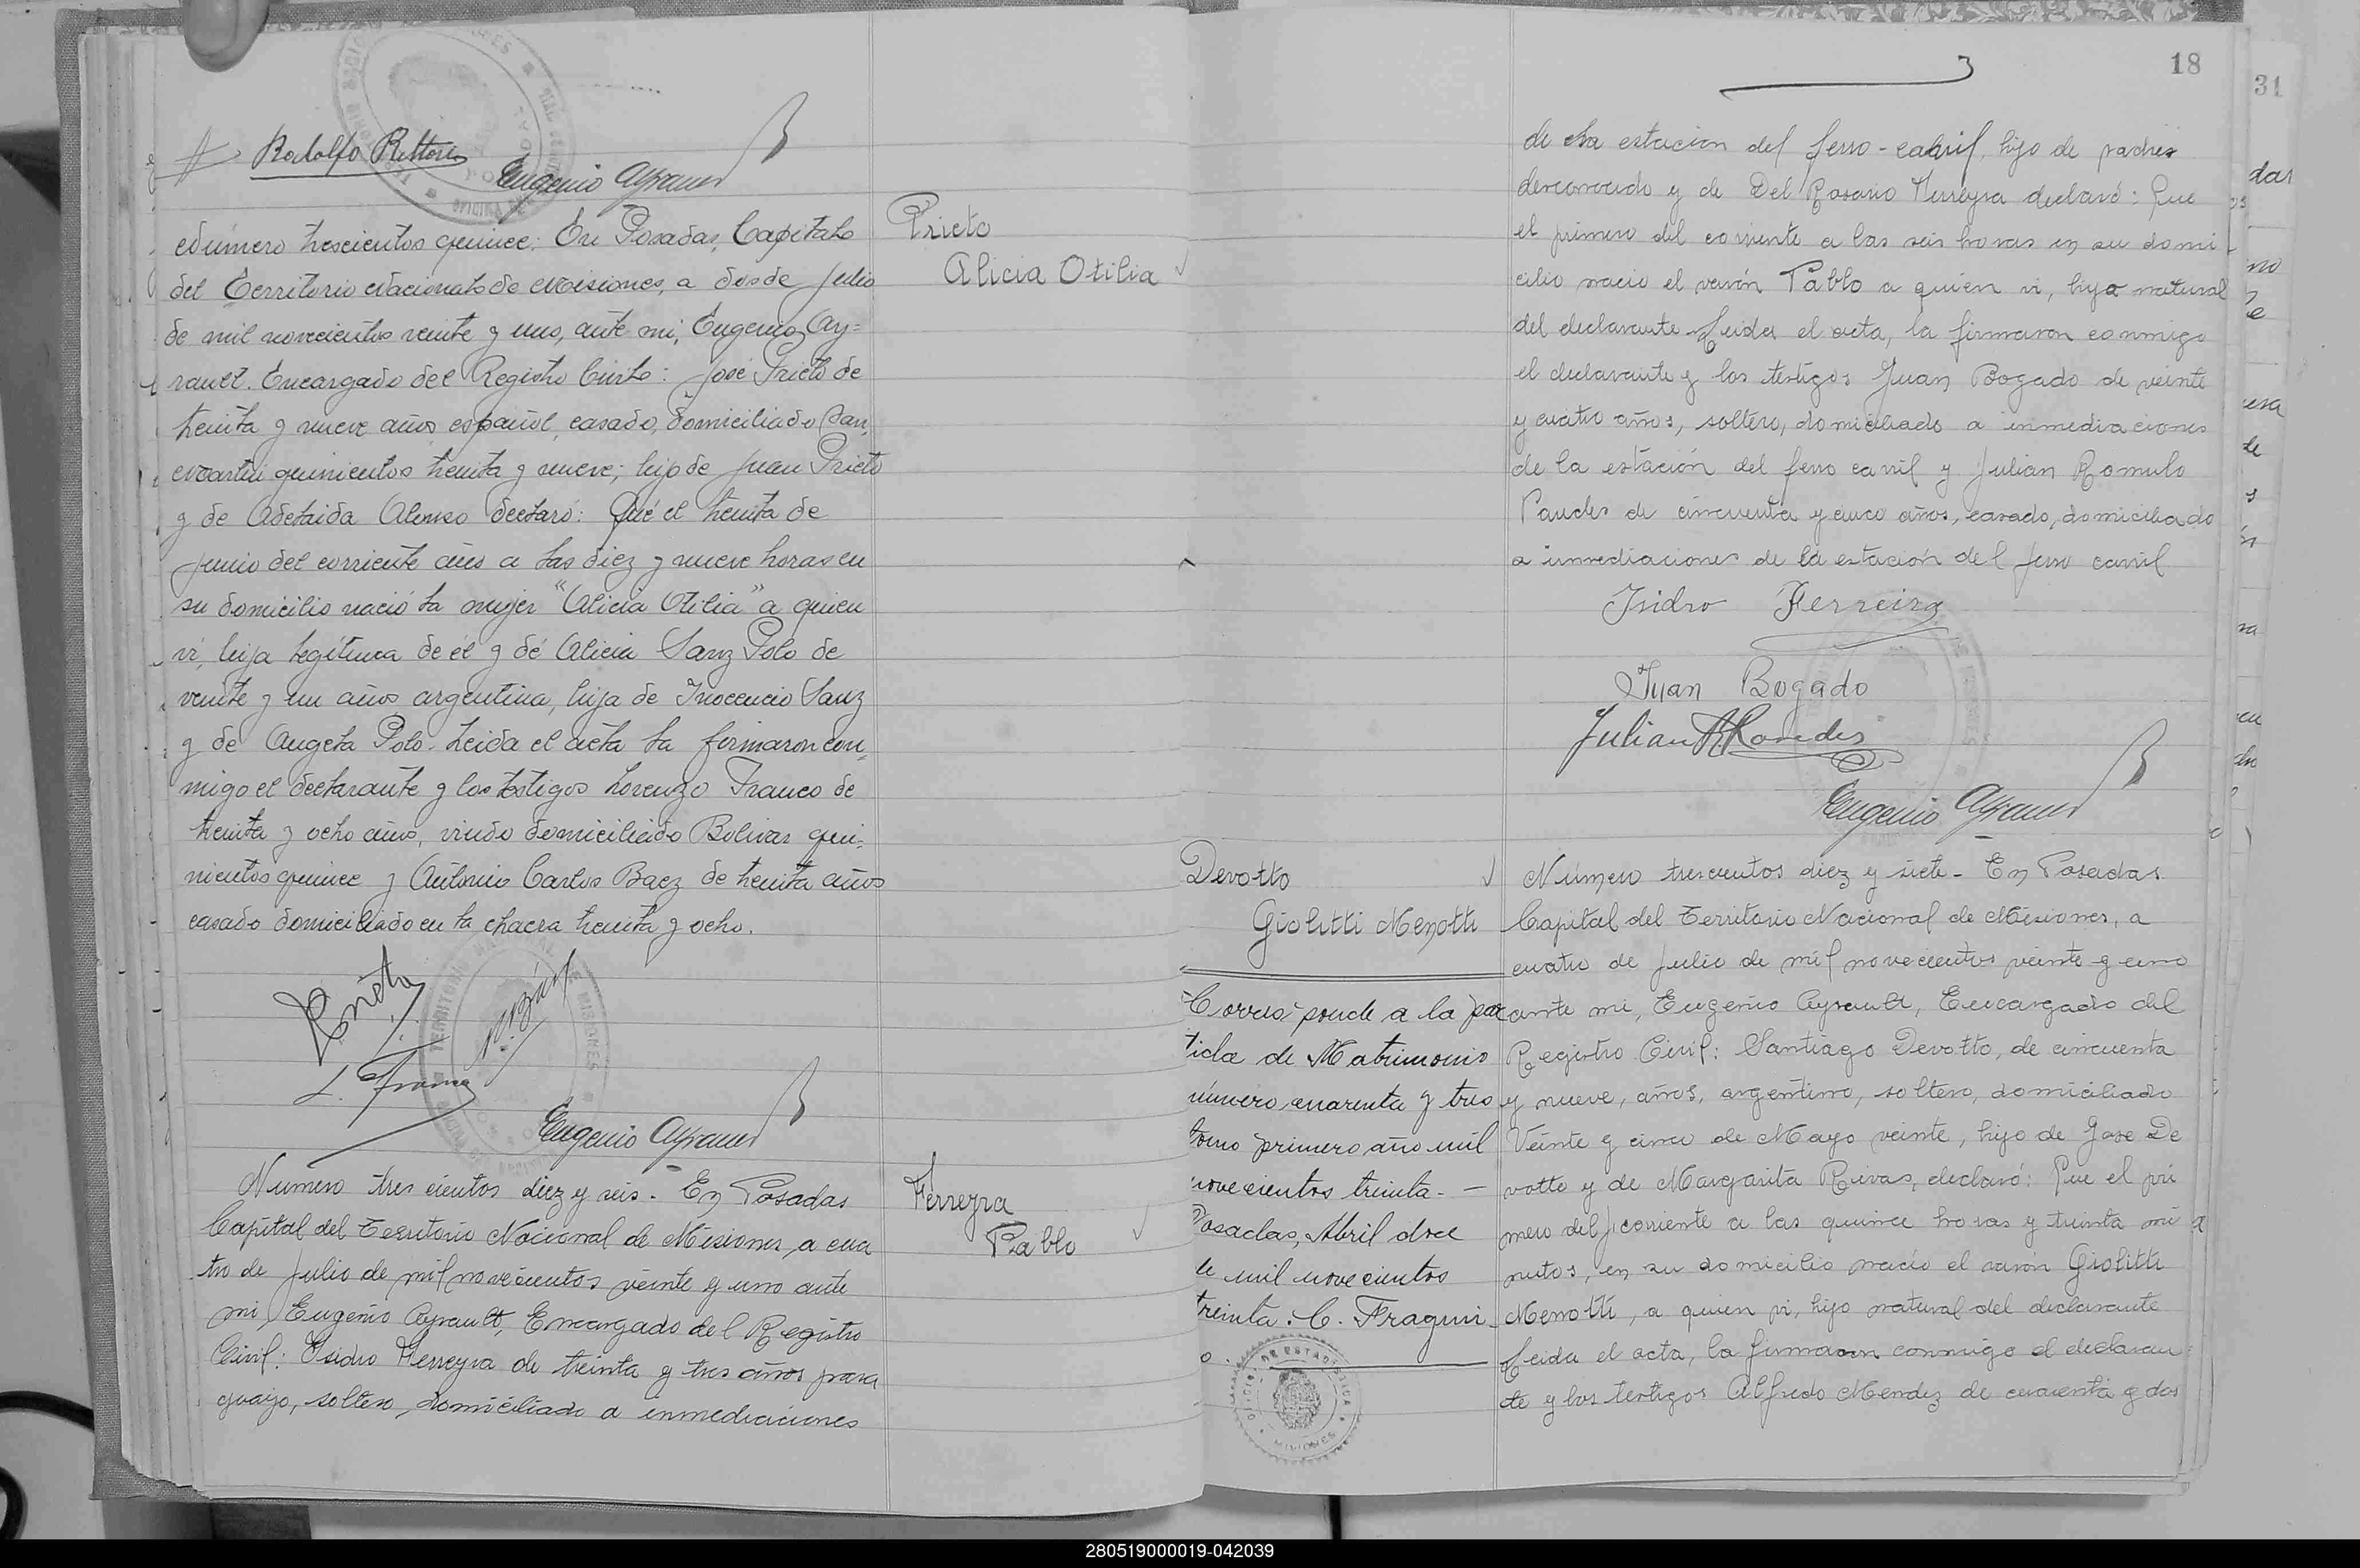 Rodolfo Rittore
Eugenio Ayrault
Número trescientos quince: En Posadas, Capital
del Territorio Nacional de Misiones, a dos de Julio
de mil novecientos veinte y uno, ante mi, Eugenio Ay=
rault. Encargado del Registro Civil: José Prieto de
treinta y nueve años español, casado, domiciliado San
Martin quinientos treinta y nueve; hijo de Juan Prieto
y de Adelaida Alonso declaró: Qué el treinta de
Junio del corriente año a las diez y nueve horas en
su domicilio nació la mujer "Alicia Otilia" a quien
ví, hija legítima de él y de Alicia Sanz Polo de
veinte y un años, argentina, hija de Inocencio Sanz
y de Angela Polo. Leida el acta la firmaron con
migo el declarante y los testigos Lorenzo Franco de
treinta y ocho años, viudo domiciliado Bolivar qui=
nientos quince y Antonio Carlos Baez de treinta años
casado domiciliado en la chacra treinta y ocho.
L. Franco
Eugenio Ayrault
Prieto
Alicia Otilia
Número tres cientos diez y seis. En Posadas
Capital del Territorio Nacional de Misiones, a cua
tro de Julio de mil novecientos veinte y uno ante
mi, Eugenio Ayrault, Encargado del Registro
Civil: Isidro Ferreyra de treinta y tres años para
guayo, soltero, domiciliado a inmediaciones
Ferreyra
Pablo
18
de la estacion del ferro-carril, hijo de padres
desconocido y de Del Rosario Ferreyra declaró: Que
el primero del corriente a las seis horas en su domi
cilio nacio el varón Pablo a quien vi, hijo natural
del declarante. Leida el acta, la firmaron conmigo
el declarante y los testigos Juan Bogado de veinte
y cuatro años, soltero, domiciliado a inmediaciones
de la estación del ferro carril y Julian Romulo
Paredes de cincuenta y cinco años, casado, domiciliado
a inmediaciones de la estación del ferro carril
Isidro Ferreira
Juan Bogado
Julian R Paredes
Eugenio Ayrault
Devotto
Giolitti Menotti
Corresponde a la par
tida de Matrimonio
número cuarenta y tres
tomo primero año mil
novecientos treinta. -
Posadas, Abril doce
de mil novecientos
treinta. C. Fragui
OFICINA DE ESTADISTICA
MISIONES
Número trescientos diez y siete - En Posadas
Capital del Territorio Nacional de Misiones, a
cuatro de Julio de mil novecientos veinte y uno
ante mi, Eugenio Ayrault, Encargado del
Registro Civil: Santiago Devotto, de cincuenta
y nueve, años, argentino, soltero, domiciliado
Veinte y cinco de Mayo veinte, hijo de Jose De
votto y de Margarita Rivas, declaró: Que el pri
mero del corriente a las quince horas y treinta mi
nutos, en su domicilio nacio el varón Giolitti
Menotti, a quien vi, hijo natural del declarante
Leida el acta, la firmaron conmigo el declaran
te y los testigos Alfredo Mendez de cuarenta y dos
31
280519000019-042039